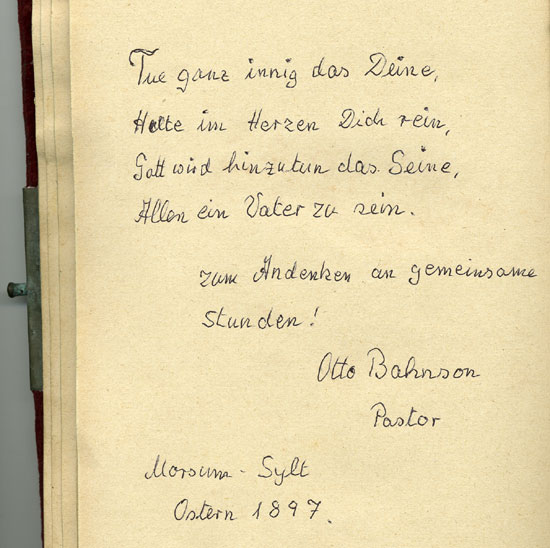 Tue ganz innig das Deine,
Halte im Herzen Dich rein,
Gott wird hinzutun das Seine,
Allen ein Vater zu sein.
zum Andenken an gemeinsame
Stunden!
Otto Bahnson
Pastor
Morsum - Sylt
Ostern 1897.